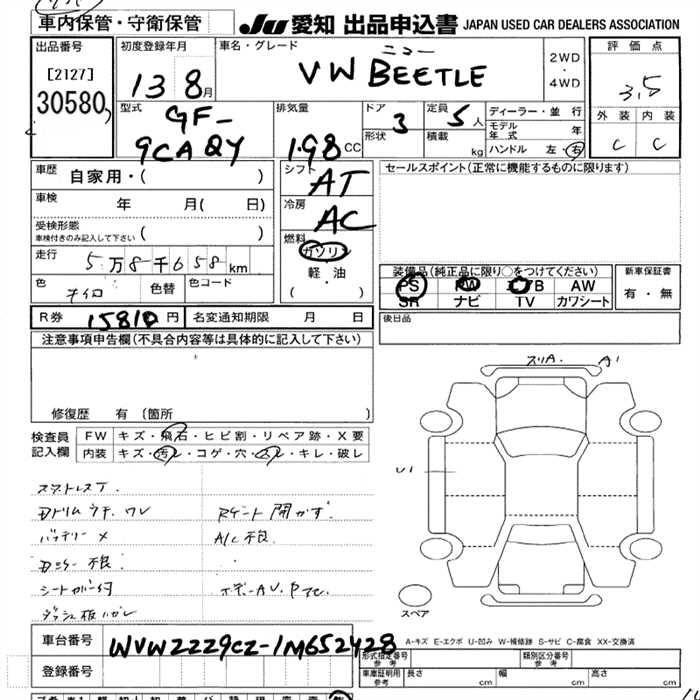 車内保管・守衛保管
JU 愛知 出品申込書 JAPAN USED CAR DEALERS ASSOCIATION
出品番号
[2127]
30580
初度登録年月
13 8月
車名・グレード
ニュー
VW BEETLE
2WD
・
4WD
評価点
3,5
外装 内装
C C
型式
GF-
9CAQY
排気量
1.98 CC
ドア
3
形状
定員
5人
積載
kg
ディーラー・並行
モデル年式 年
ハンドル 左・右
車歴
自家用・( )
車検
年 月( 日)
受検形態
車検付きのみ記入して下さい ( )
走行
5万8千658km
色
色替
色コード
シフト
AT
冷房
AC
燃料
ガソリン
軽・油
( ・ )
セールスポイント(正常に機能するものに限ります)
装備品(純正品に限り○をつけてください)
PS PW エアB AW
SR ナビ TV カワシート
新車保証書
有・無
後日品
R券 15810円
名変通知期限 月 日
注意事項申告欄(不具合内容等は具体的に記入して下さい)
修復歴 有(箇所 )
検査員記入欄
FW キズ・飛石・ヒビ割・リペア跡・X要
内装 キズ・汚レ・コゲ・穴・スレ・キレ・破レ
バッテリー×
Rゲート開かず
A/C
スリA. A1
U1
スペア
A-キズ E-エクボ U-凹み W-補修跡 S-サビ C-腐食 XX-交換済
車台番号
WVWZZZ9CZ-1M652428
登録番号
形式指定番号 参考
類別区分番号 参考
車庫証明用 参考
長さ cm
幅 cm
高さ cm